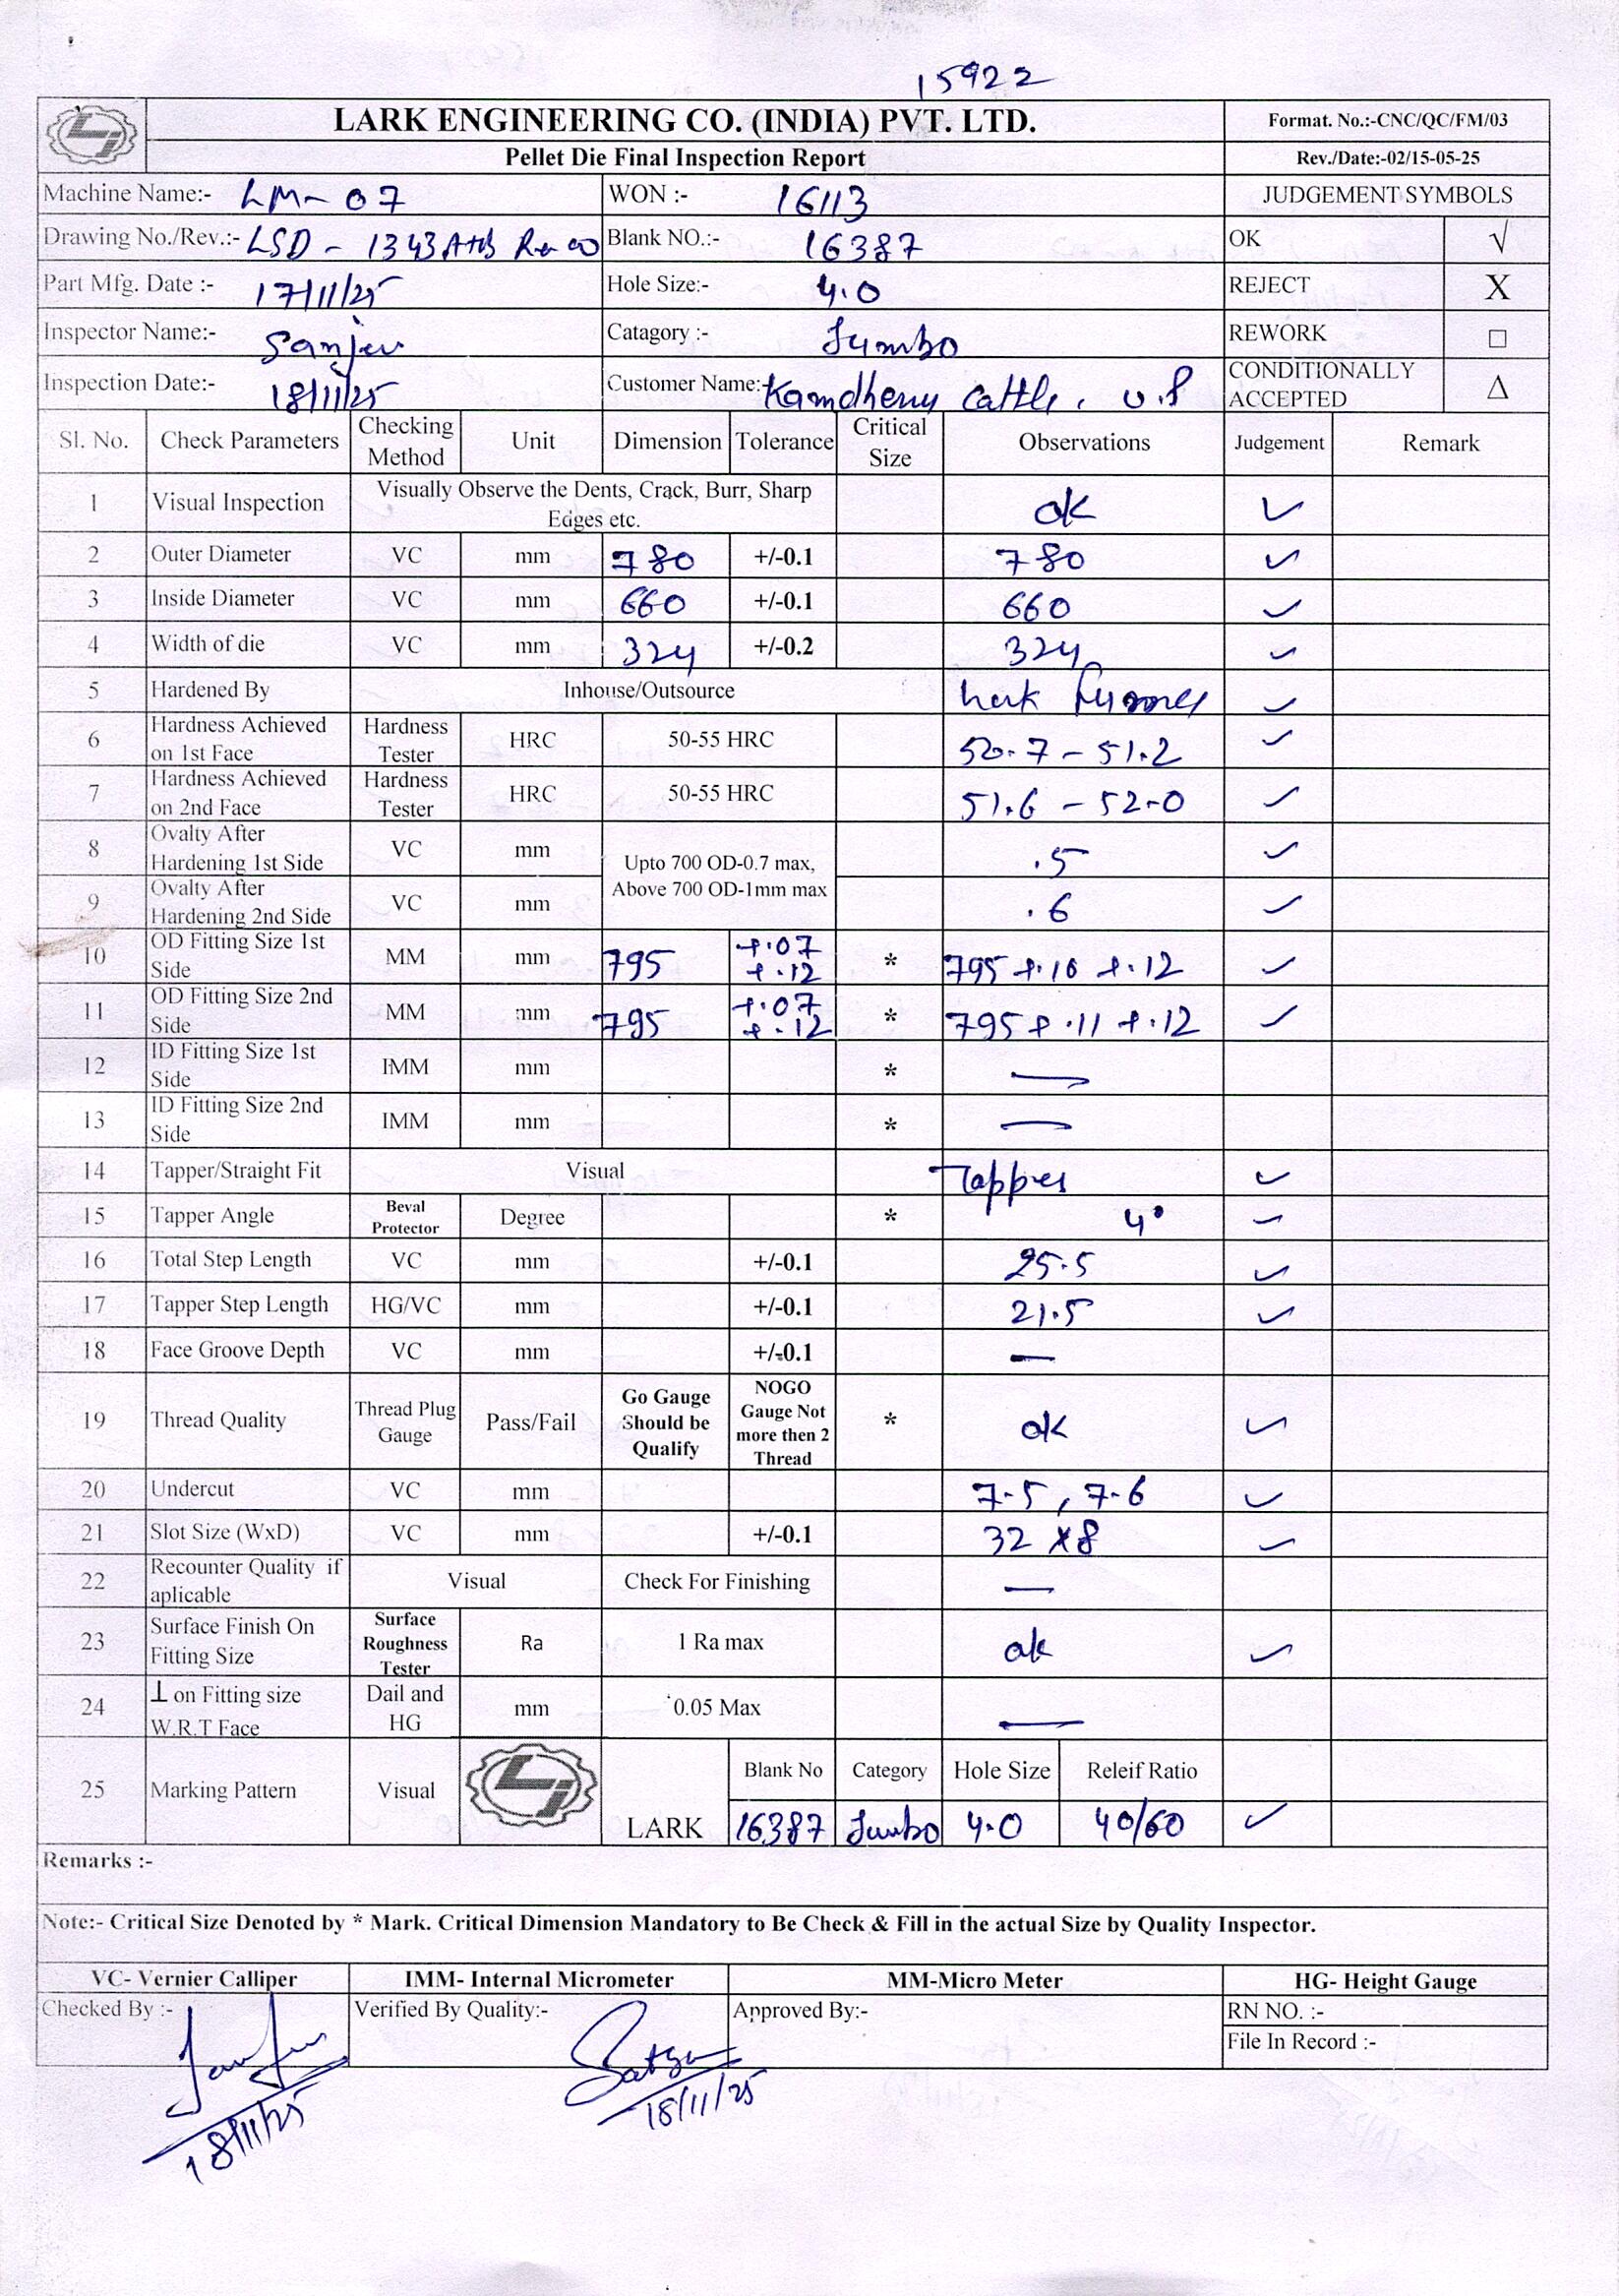 15922
LARK ENGINEERING CO. (INDIA) PVT. LTD. Format. No.:-CNC/QC/FM/03
Pellet Die Final Inspection Report Rev./Date:-02/15-05-25
Machine Name:- LM-07 WON :- 16113 JUDGEMENT SYMBOLS
Drawing No./Rev.:- LSD - 1343 Blank NO.:- 16387 OK √
Part Mfg. Date :- 17/11/25 Hole Size:- 4.0 REJECT X
Inspector Name:- Sanjeev Catagory :- Jumbo REWORK □
Inspection Date:- 18/11/25 Customer Name:- Kamdhenu Cattle, U.P CONDITIONALLY ACCEPTED Δ
Sl. No. Check Parameters Checking Method Unit Dimension Tolerance Critical Size Observations Judgement Remark
1 Visual Inspection Visually Observe the Dents, Crack, Burr, Sharp Edges etc. ok ✓
2 Outer Diameter VC mm 780 +/-0.1 780 ✓
3 Inside Diameter VC mm 660 +/-0.1 660 ✓
4 Width of die VC mm 324 +/-0.2 324 ✓
5 Hardened By Inhouse/Outsource Lark ✓
6 Hardness Achieved on 1st Face Hardness Tester HRC 50-55 HRC 50.7 - 51.2 ✓
7 Hardness Achieved on 2nd Face Hardness Tester HRC 50-55 HRC 51.6 - 52.0 ✓
8 Ovalty After Hardening 1st Side VC mm Upto 700 OD-0.7 max, Above 700 OD-1mm max .5 ✓
9 Ovalty After Hardening 2nd Side VC mm .6 ✓
10 OD Fitting Size 1st Side MM mm 795 +.07 +.12 * 795 +.10 +.12 ✓
11 OD Fitting Size 2nd Side MM mm 795 +.07 +.12 * 795 +.11 +.12 ✓
12 ID Fitting Size 1st Side IMM mm * —
13 ID Fitting Size 2nd Side IMM mm * —
14 Tapper/Straight Fit Visual Tapper ✓
15 Tapper Angle Beval Protector Degree * 4° ✓
16 Total Step Length VC mm +/-0.1 25.5 ✓
17 Tapper Step Length HG/VC mm +/-0.1 21.5 ✓
18 Face Groove Depth VC mm +/-0.1 —
19 Thread Quality Thread Plug Gauge Pass/Fail Go Gauge Should be Qualify NOGO Gauge Not more then 2 Thread * ok ✓
20 Undercut VC mm 7.5, 7.6 ✓
21 Slot Size (WxD) VC mm +/-0.1 32 x 8 ✓
22 Recounter Quality if aplicable Visual Check For Finishing —
23 Surface Finish On Fitting Size Surface Roughness Tester Ra 1 Ra max ok ✓
24 ⊥ on Fitting size W.R.T Face Dail and HG mm 0.05 Max —
25 Marking Pattern Visual LARK Blank No Category Hole Size Releif Ratio
16387 Jumbo 4.0 40/60 ✓
Remarks :-
Note:- Critical Size Denoted by * Mark. Critical Dimension Mandatory to Be Check & Fill in the actual Size by Quality Inspector.
VC- Vernier Calliper IMM- Internal Micrometer MM-Micro Meter HG- Height Gauge
Checked By :- Verified By Quality:- Approved By:- RN NO. :-
File In Record :-
18/11/25 18/11/25